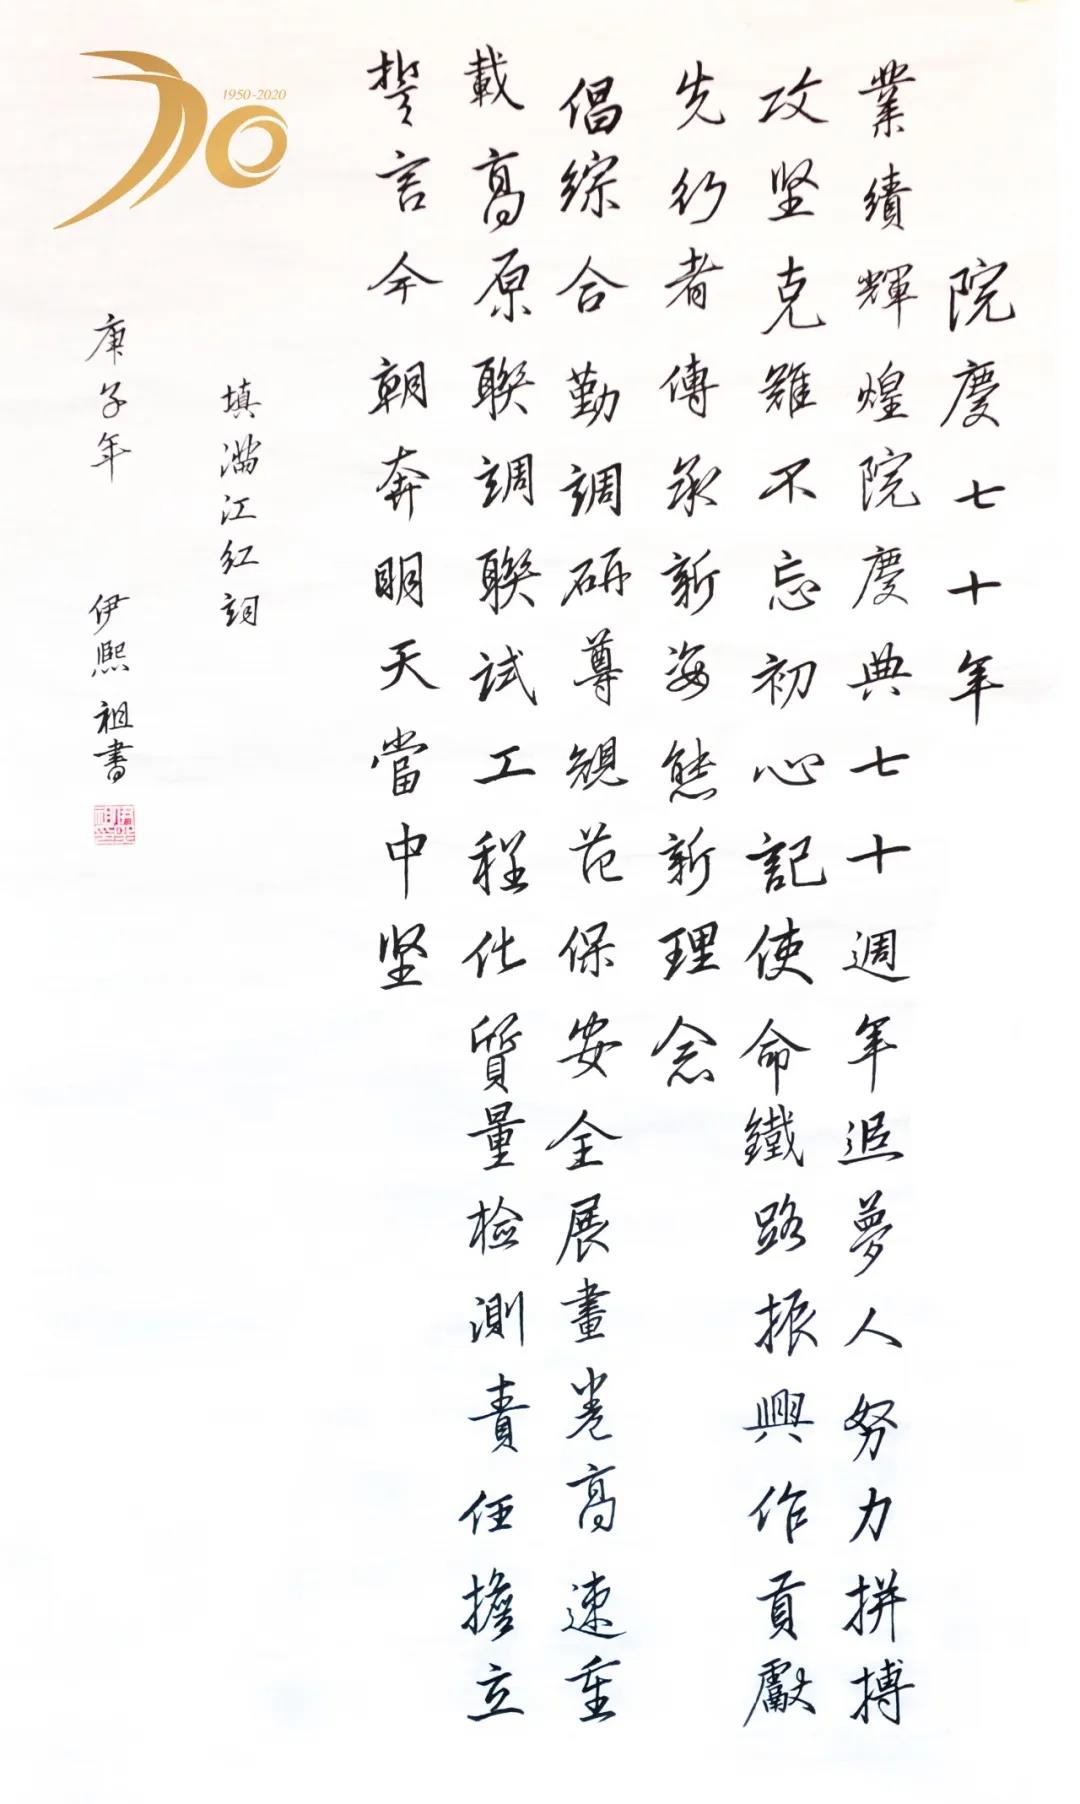 院慶七十年
業績輝煌院慶典七十週年追夢人努力拼搏
攻坚克難不忘初心記使命鐵路振興作貢獻
先行者傳承新姿態新理念
倡綜合勤調研尊規范保安全展畫卷高速重
載高原聯調聯試工程化質量檢測責任擔立
誓言今朝奔明天當中坚
填滿江紅詞
庚子年 伊熙祖書
1950-2020